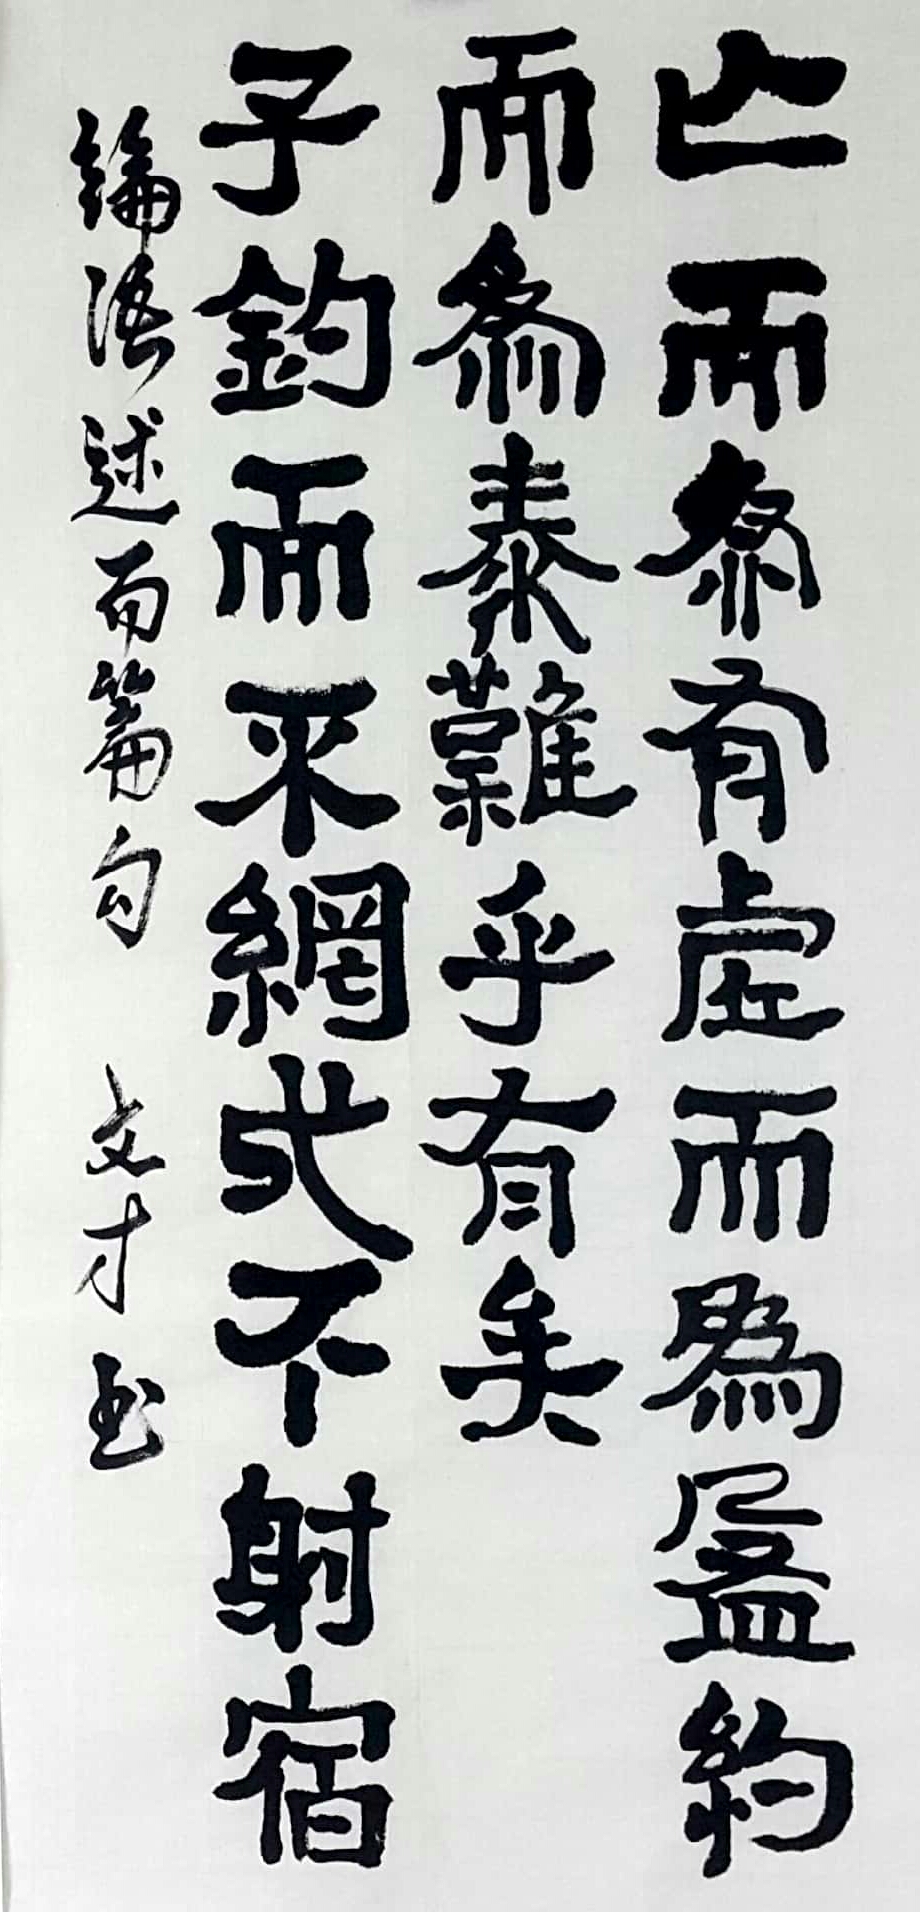 亡而為有虛而為盈約
而為泰難乎有矣
子釣而不網弋不射宿
論語述而篇句 文才書